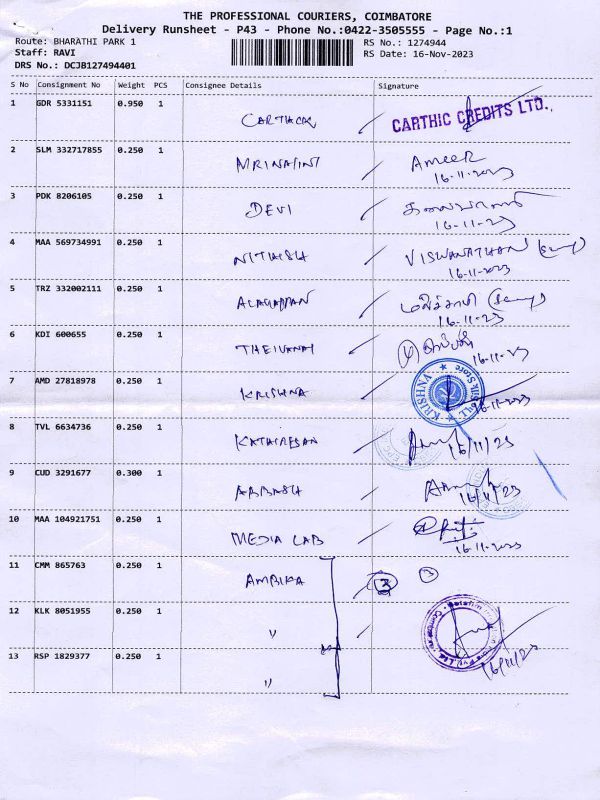 THE PROFESSIONAL COURIERS, COIMBATORE
Delivery Runsheet - P43 - Phone No.:0422-3505555 - Page No.:1
Route: BHARATHI PARK 1 RS No.: 1274944
Staff: RAVI RS Date: 16-Nov-2023
DRS No.: DCJB127494401
S No Consignment No Weight PCS Consignee Details Signature
1 GDR 5331151 0.950 1 CARTHICK CARTHIC CREDITS LTD.,
2 SLM 332717855 0.250 1 MRINALINI AMEER
16-11-2023
3 PDK 8206105 0.250 1 DEVI
16-11-23
4 MAA 569734991 0.250 1 NITHISH VISWANATHAN
16-11-2023
5 TRZ 332002111 0.250 1 ALAGAPPAN
16-11-23
6 KDI 600655 0.250 1 THEIVANAI
16-11-23
7 AMD 27818978 0.250 1 KRISHNA KRISHNA
16-11-2023
8 TVL 6634736 0.250 1 KATHIRESAN
16/11/23
9 CUD 3291677 0.300 1 ABBASH
16/11/23
10 MAA 104921751 0.250 1 MEDIA LAB
16-11-2023
11 CMM 865763 0.250 1 AMBIKA 3 3
12 KLK 8051955 0.250 1 "
13 RSP 1829377 0.250 1 " 16/11/23